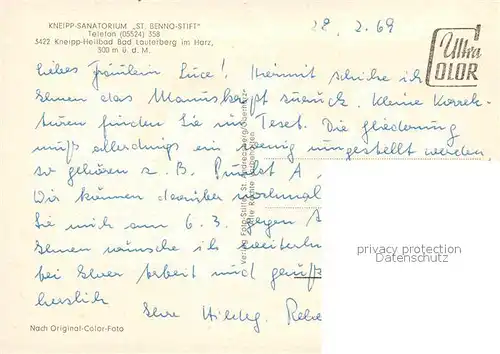 KNEIPP-SANATORIUM „ST. BENNO-STIFT"
Telefon (05524) 358
3422 Kneipp-Heilbad Bad Lauterberg im Harz,
300 m ü. d. M.
28. 2. 69
Ultra
COLOR
Liebes Fräulein Luce! Hiermit schicke ich
Ihnen das Manuskript zurück. Kleine Korrek-
turen finden Sie im Text. Die Gliederung
muß allerdings ein wenig umgestellt werden,
so gehören z. B. Punkt A
Wir können darüber nochmal
Sie mich am 6. 3. gegen
Ihnen wünsche ich weiterhin
bei Ihrer Arbeit und grüß
herzlich
Ihre Hildeg.
Verlag Foto-Stiftel, St. Andreasberg/Oberharz
Alle Rechte vorbehalten
privacy protection
Details COLLECT
Nach Original-Color-Foto